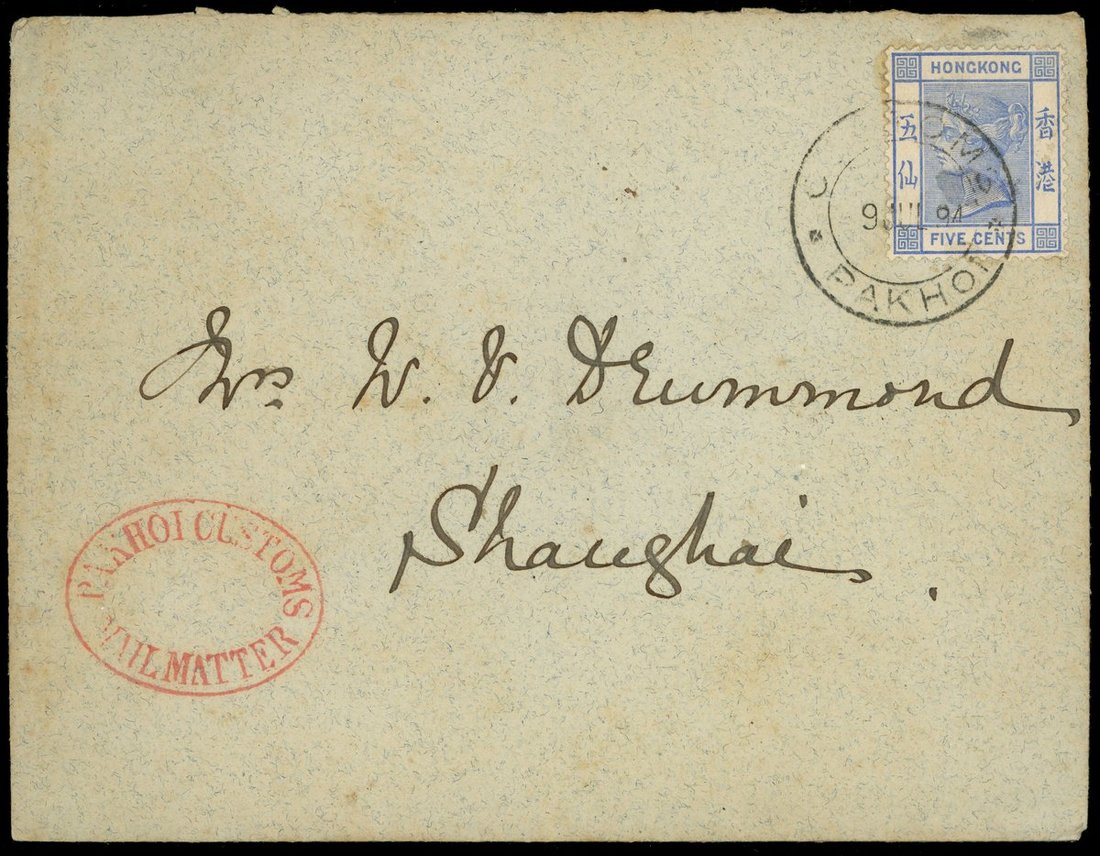 HONGKONG
五仙
香港
FIVE CENTS
CUSTOMS
9 JUL 94
PAKHOI
Mrs W. V. Drummond
Shanghai.
PAKHOI CUSTOMS
MAIL MATTER